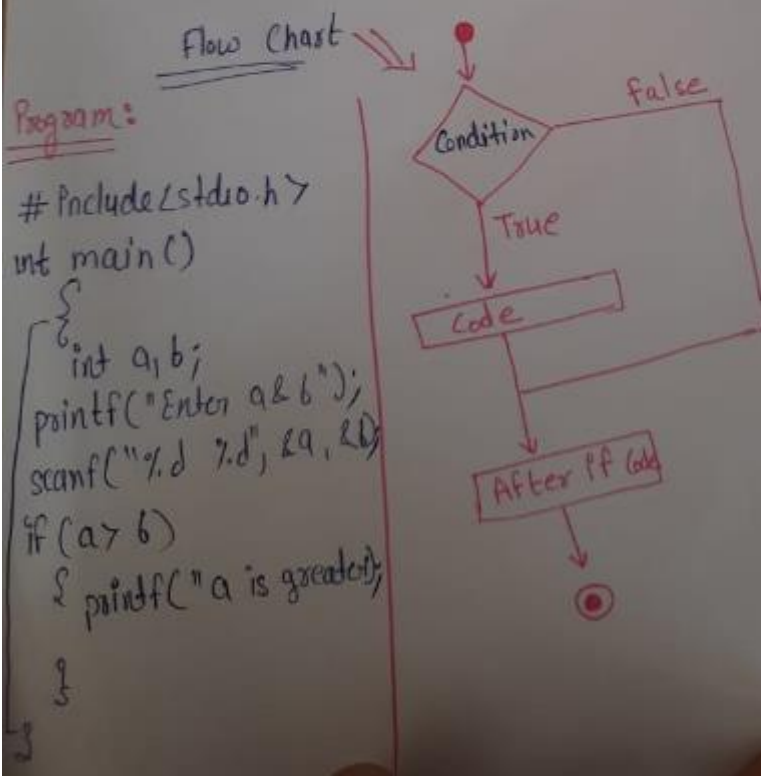 Flow Chart
Program:
# Include <stdio.h>
int main()
{
int a, b;
printf("Enter a & b");
scanf("%d %d", &a, &b);
if (a > b)
{ printf("a is greater");
}
}
Condition
false
True
Code
After if Code